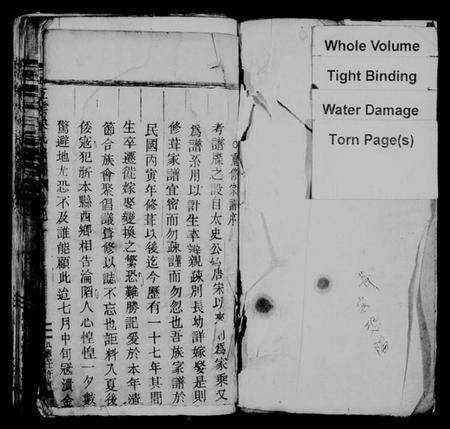 Whole Volume
Tight Binding
Water Damage
Torn Page(s)
宗譜序
考譜牒之設自太史公 唐宋以來 爲家乘又
爲譜系用以計生卒 親疎別長幼詳嫁娶是則
修葺家譜宜密而勿疎謹而勿忽也吾族家譜於
民國丙寅年修葺以後迄今歷有一十七年其間
生卒遷徙嫁娶變換之繁恐難勝記爰於本年清
節合族會聚倡議葺修以誌不忘也詎料入夏後
倭寇犯浙本縣西鄉相告淪陷人心惶惶一夕數
驚避地尤恐不及誰能顧此迨七月中旬寇潰金